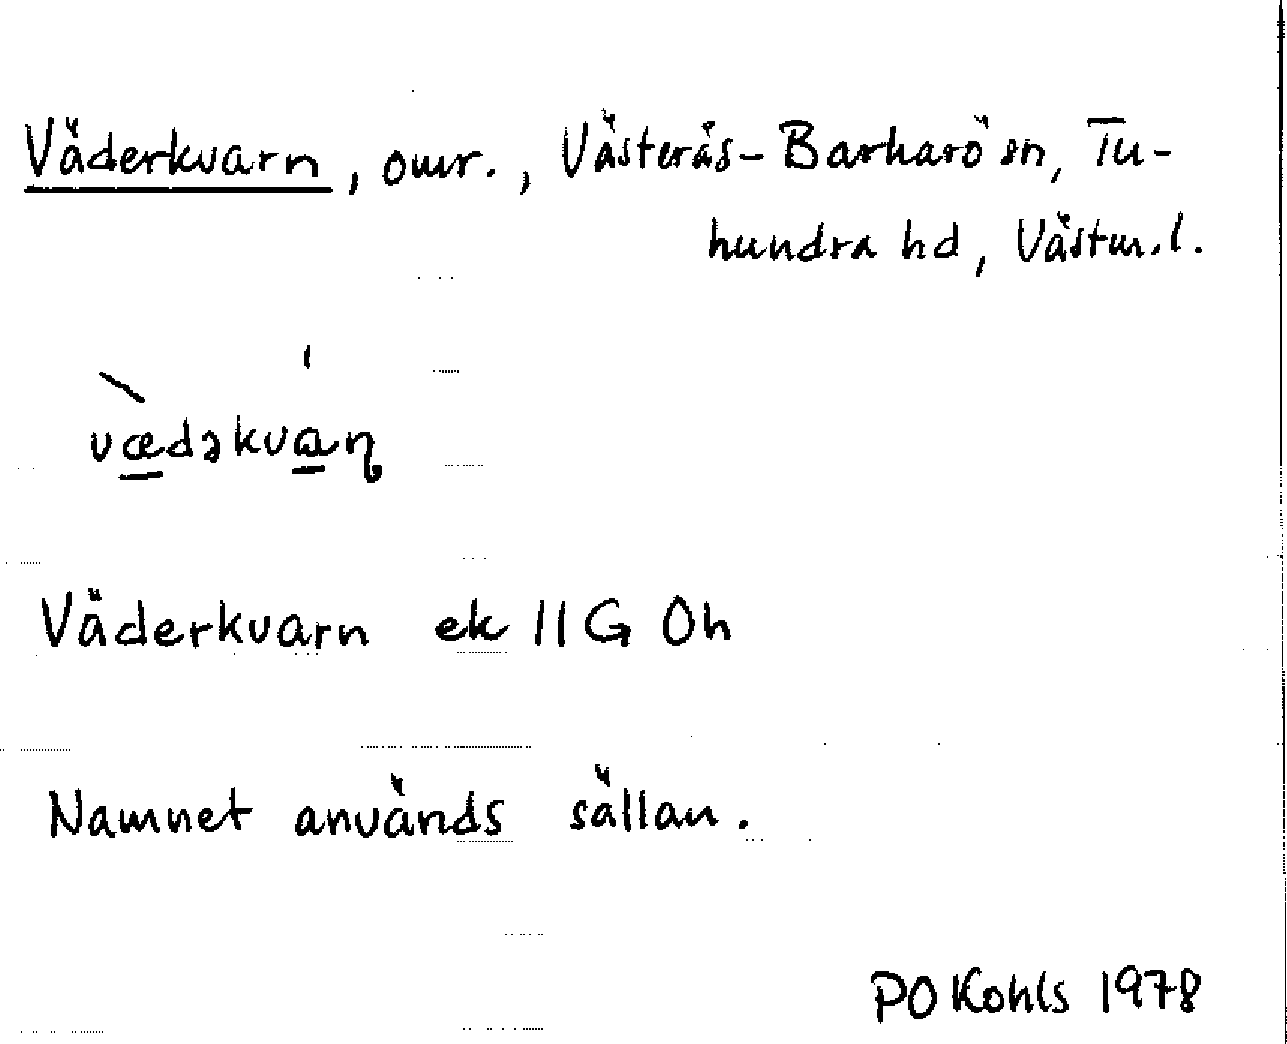 Väderkvarn, omr., Västerås-Barkarö sn, Tu-
hundra hd, Västm.l.
væ̲dəkvɑ̲ɳ
Väderkvarn ek 11G 0h
Namnet används sällan.
PO Kohls 1978